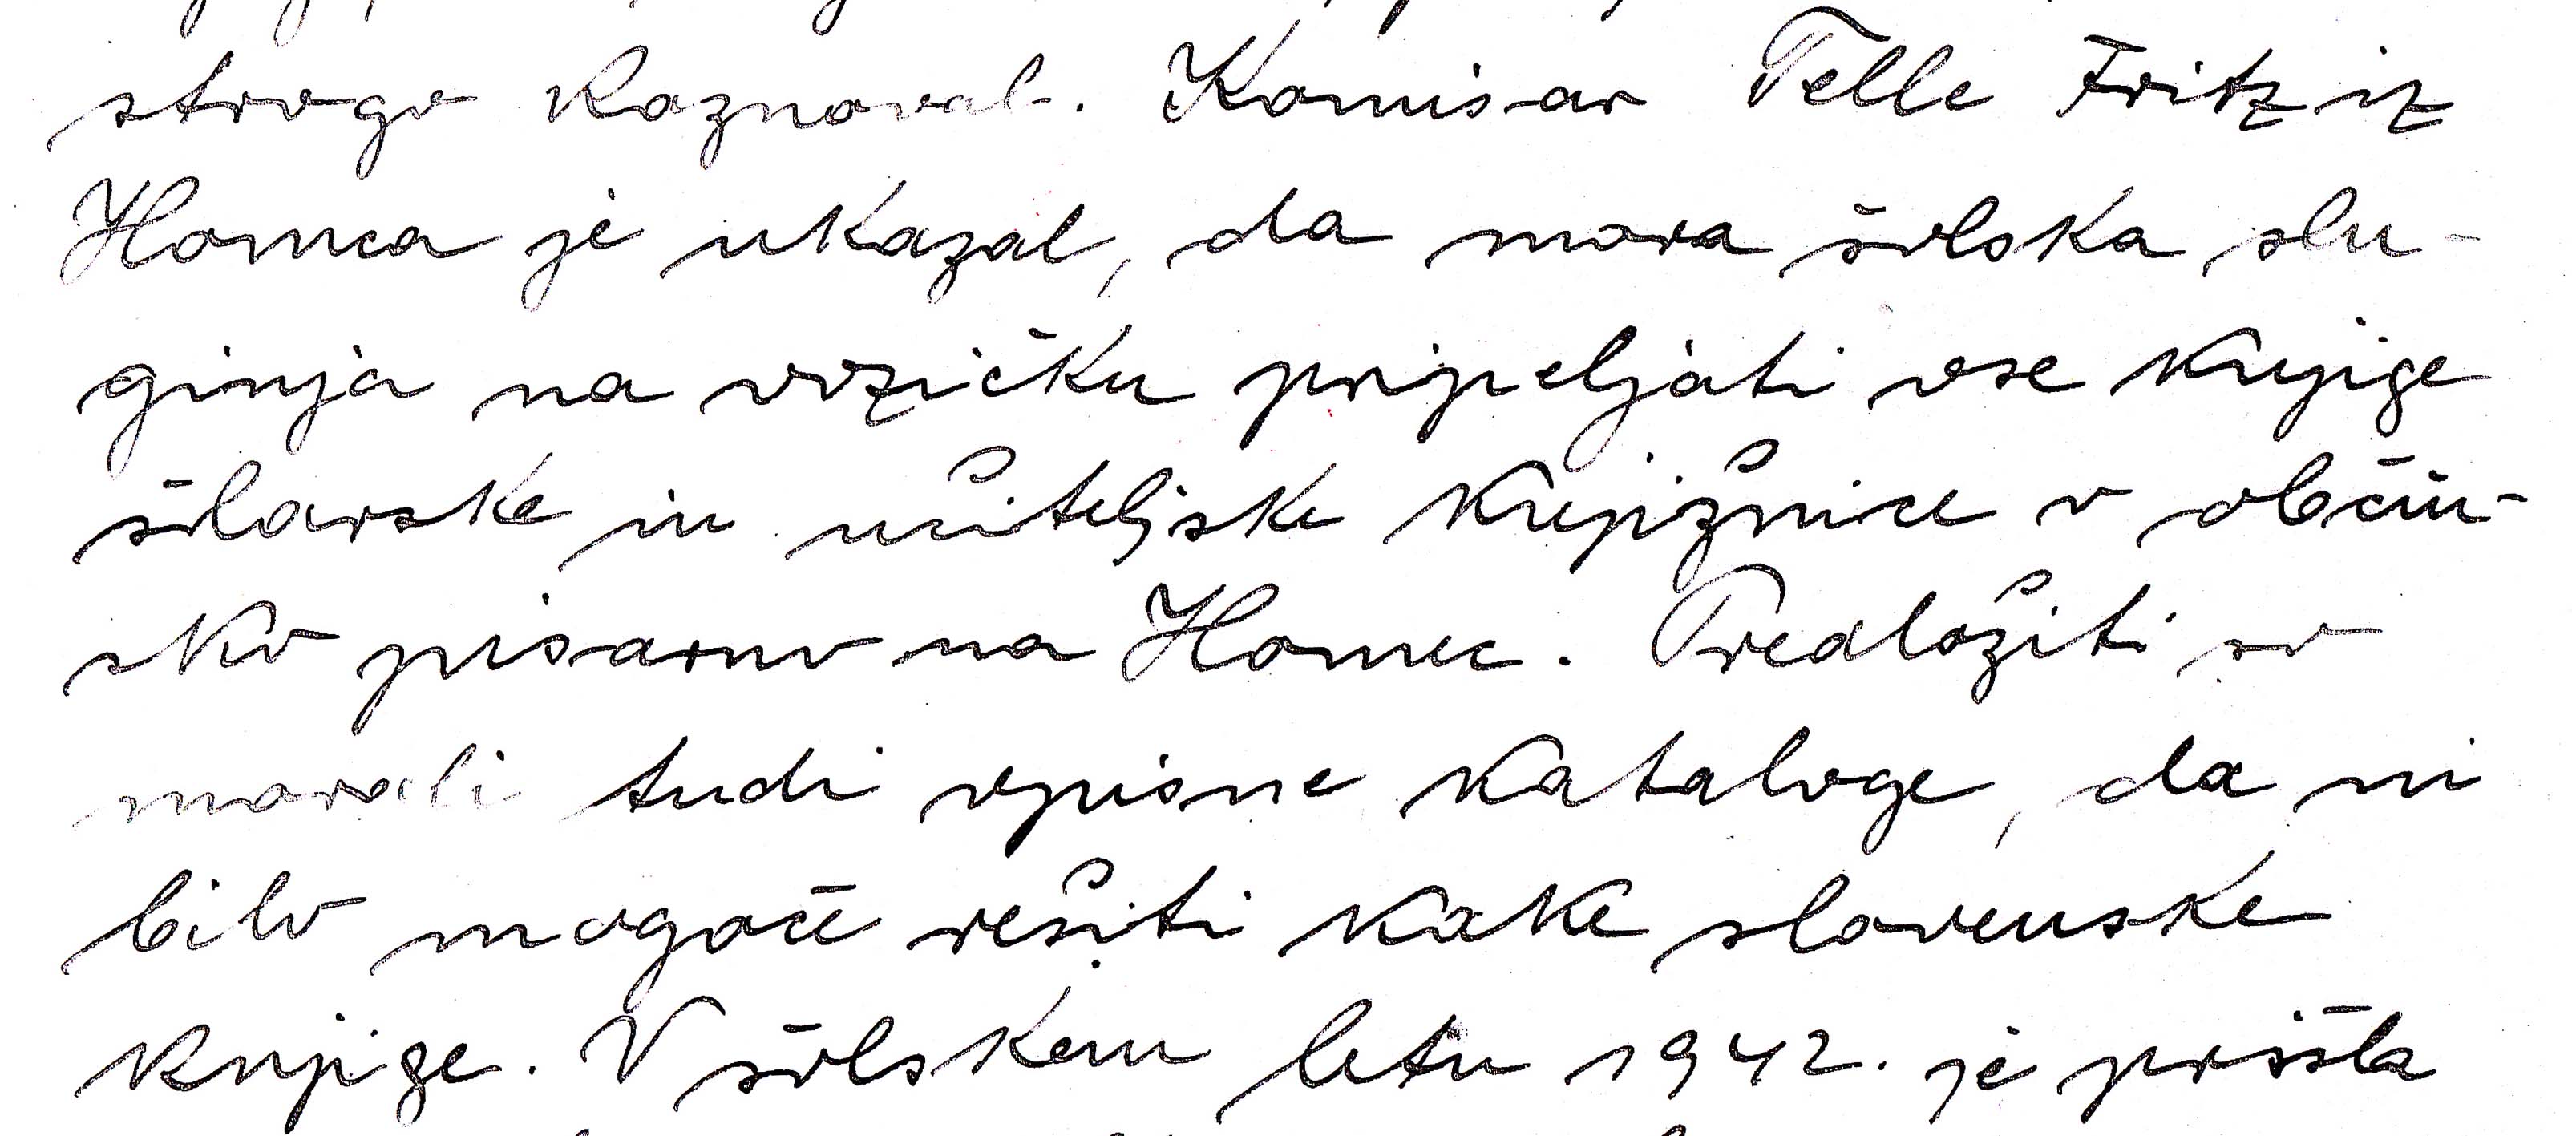 strogo kaznoval. Komisar Telle Fritz iz
Homca je ukazal, da mora šolska slu-
ginja na vozičku pripeljati vse knjige
šolarske in učiteljske knjižnice v občin-
sko pisarno na Homec. Predložiti so
morali tudi vpisne kataloge, da ni
bilo mogoče rešiti kake slovenske
knjige. V šolskem letu 1942. je prišla